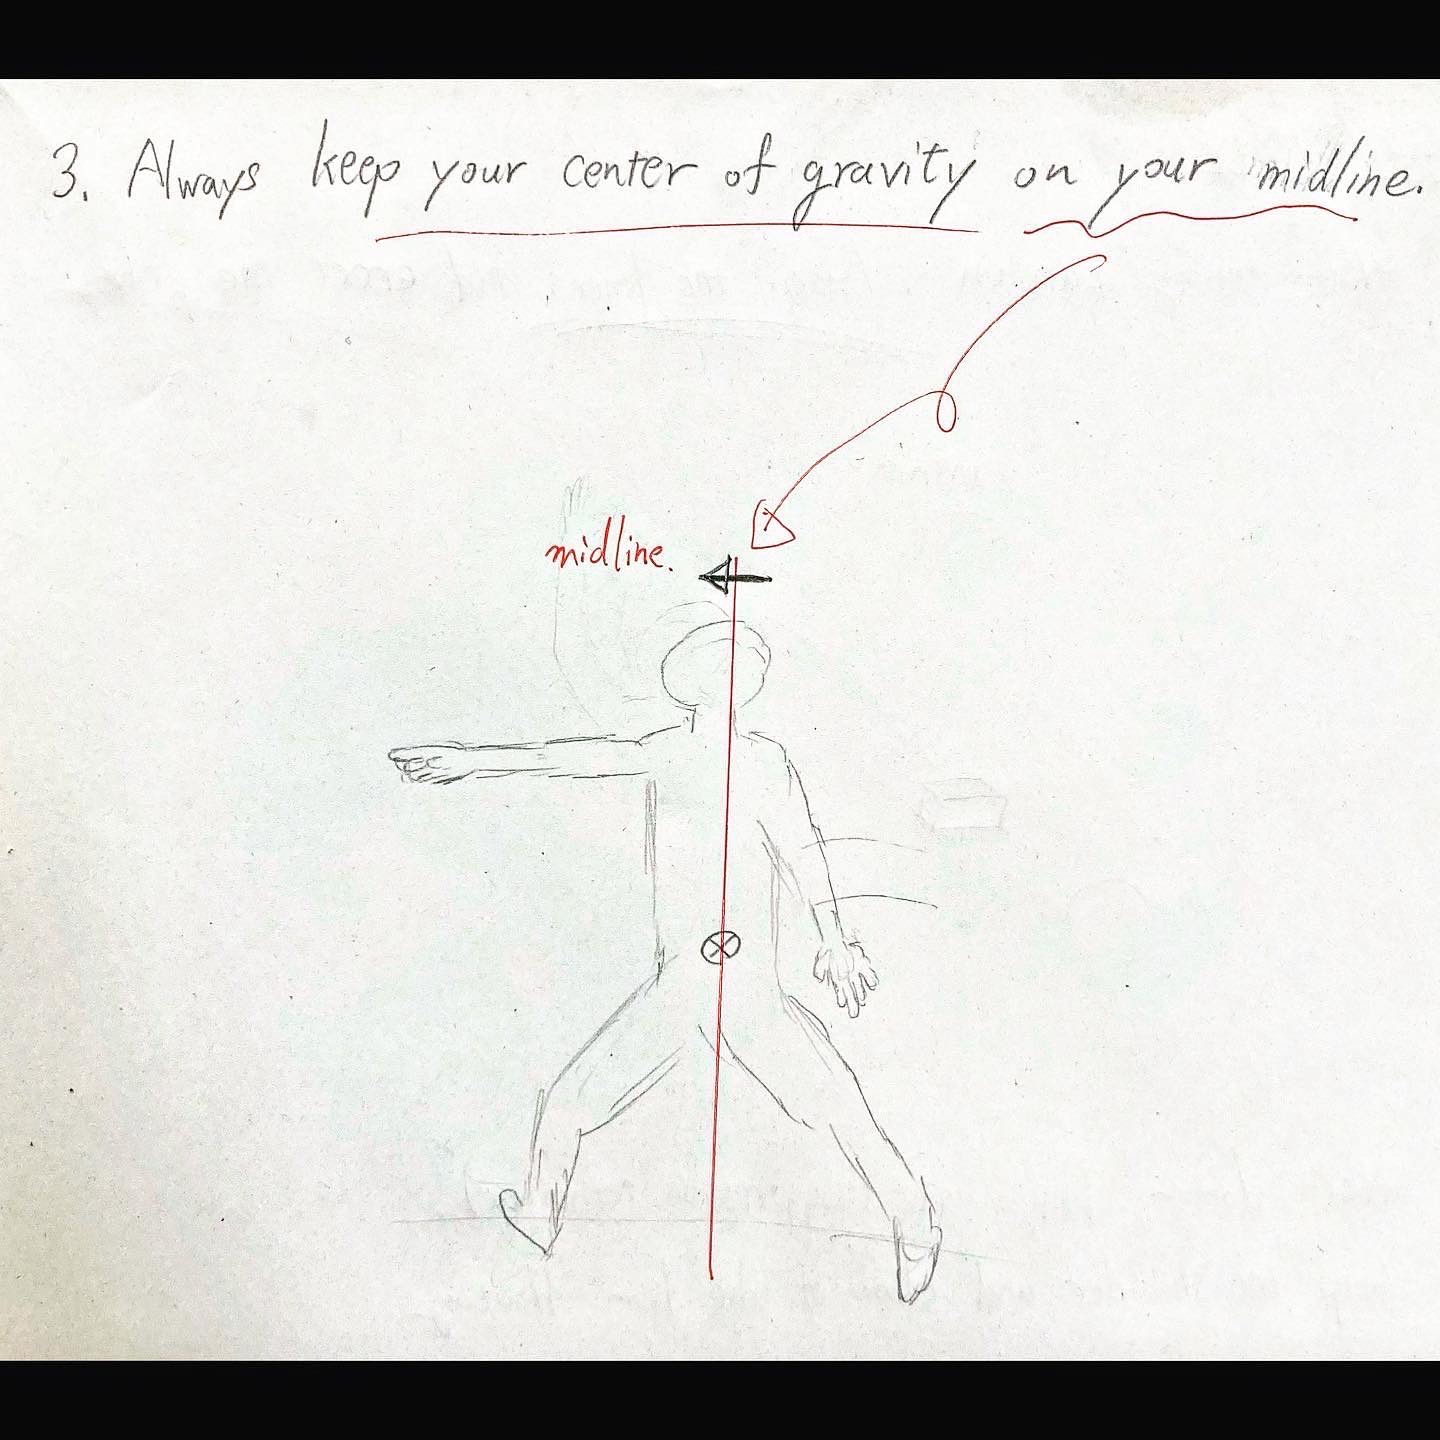 3. Always keep your center of gravity on your midline.
midline.